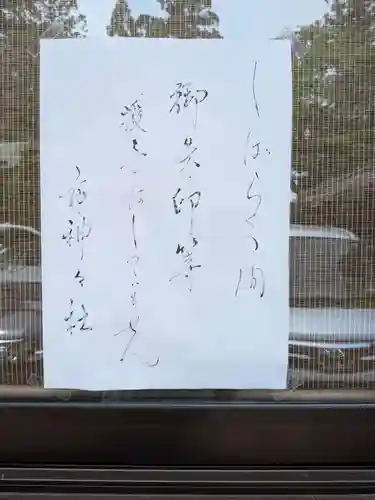 しばらくの間
御朱印等
授与はしていません
神々社